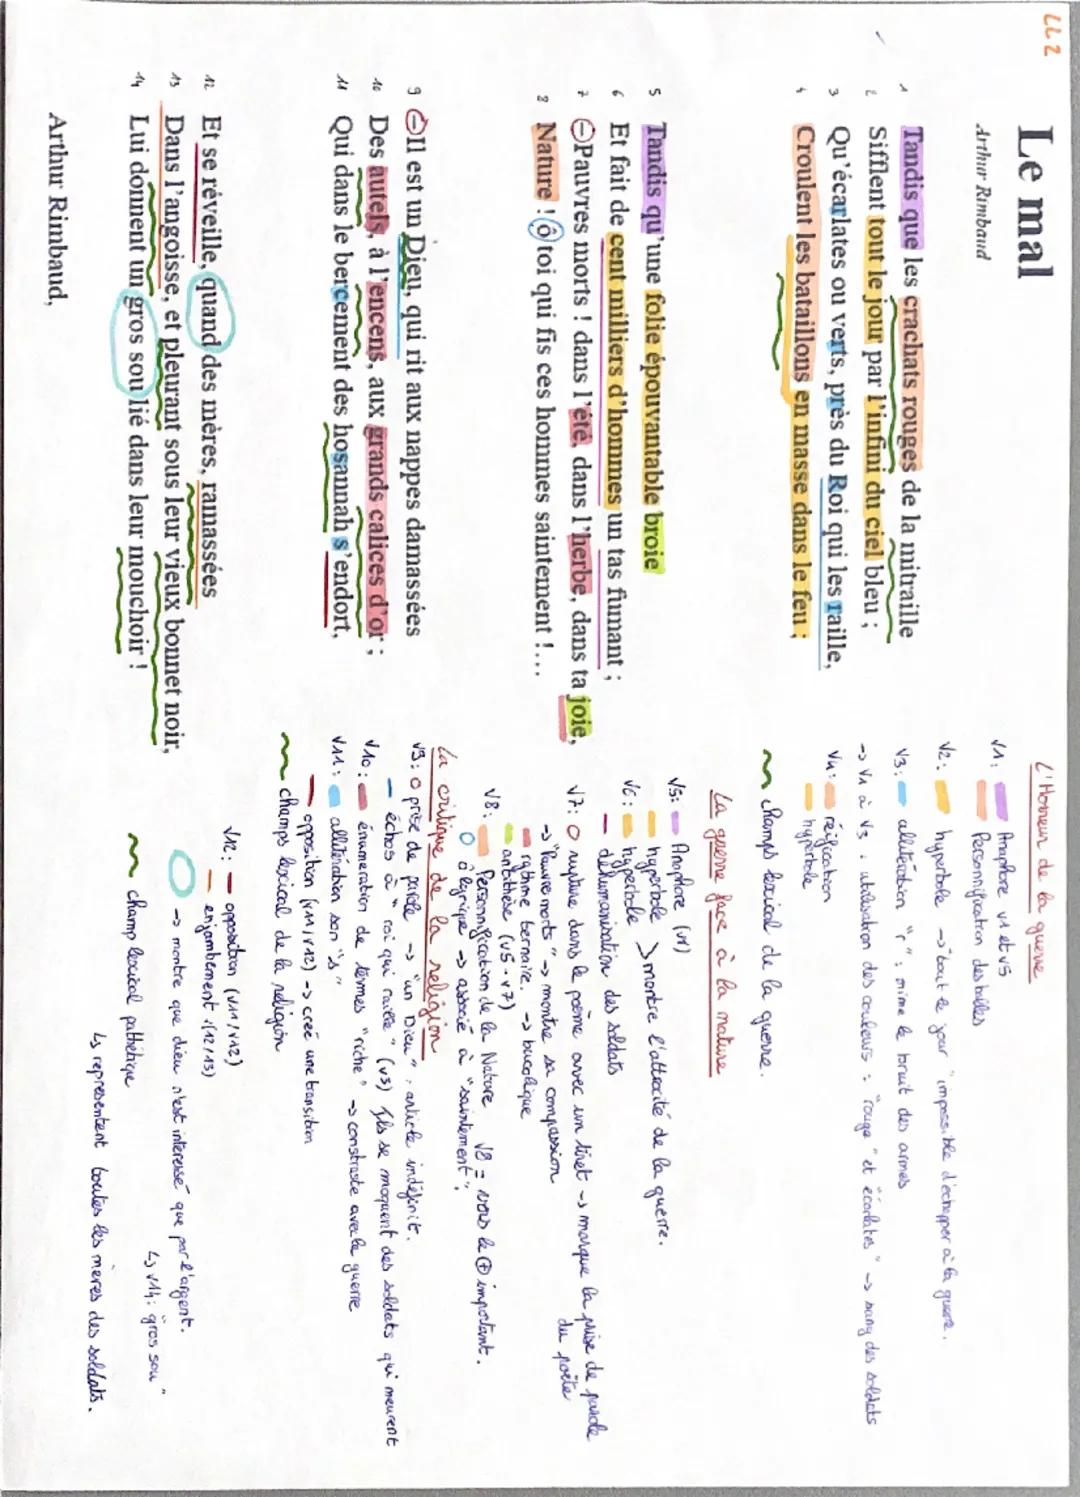 LL 2
Le mal
Arthur Rimbaud
1 Tandis que les crachats rouges de la mitraille
2 Sifflent tout le jour par l'infini du ciel bleu ;
3 Qu'écarlates ou verts, près du Roi qui les raille,
4 Croulent les bataillons en masse dans le feu ;
5 Tandis qu'une folie épouvantable broie
6 Et fait de cent milliers d'hommes un tas fumant ;
7 – Pauvres morts ! dans l'été, dans l'herbe, dans ta joie,
8 Nature ! ô toi qui fis ces hommes saintement !…
9 – Il est un Dieu, qui rit aux nappes damassées
10 Des autels, à l'encens, aux grands calices d'or ;
11 Qui dans le bercement des hosannah s'endort,
12 Et se réveille, quand des mères, ramassées
13 Dans l'angoisse, et pleurant sous leur vieux bonnet noir,
14 Lui donnent un gros sou lié dans leur mouchoir !
Arthur Rimbaud,
L'Horreur de la guerre
V1 : Anaphore v1 et v5
Personnification des balles
V2 : hyperbole -> "tout le jour" impossible d'échapper à la guerre.
V3 : allitération "r" : mime le bruit des armes
-> V1 à V3 : utilisation des couleurs : "rouge" et écarlates" -> sang des soldats
V4 : réification
hyperbole
champs lexical de la guerre.
La guerre face à la nature
V5 : Anaphore (v1)
hyperbole > montre l'attrocité de la guerre.
V6 : hyperbole
déhumanisation des soldats
V7 : O rupture dans le poème avec un tiret -> marque la prise de parole du poète
-> "Pauvre morts" -> montre sa compassion
rythme ternaire. -> bucolique
antithèse (v5 - v7)
V8 : Personnification de la Nature V8 = vers le + important.
O ô lyrique -> associé à "saintement".
La critique de la religion
V9 : O prise de parole -> "un Dieu", article indéfinit.
échos à "roi qui raille" (v3) Ils se moquent des soldats qui meurent
V10 : énumeration de termes "riche" -> constraste avec la guerre
V11 : allitération son "s"
opposition (v11/v12) -> creé une transition
champs lexical de la religion
V12 : opposition (v11/v12)
enjambement (12/13)
-> montre que dieu n'est interessé que par l'argent.
↳ v14 : gros sou"
champ lexical pathétique
↳ representent toutes les mères des soldats.